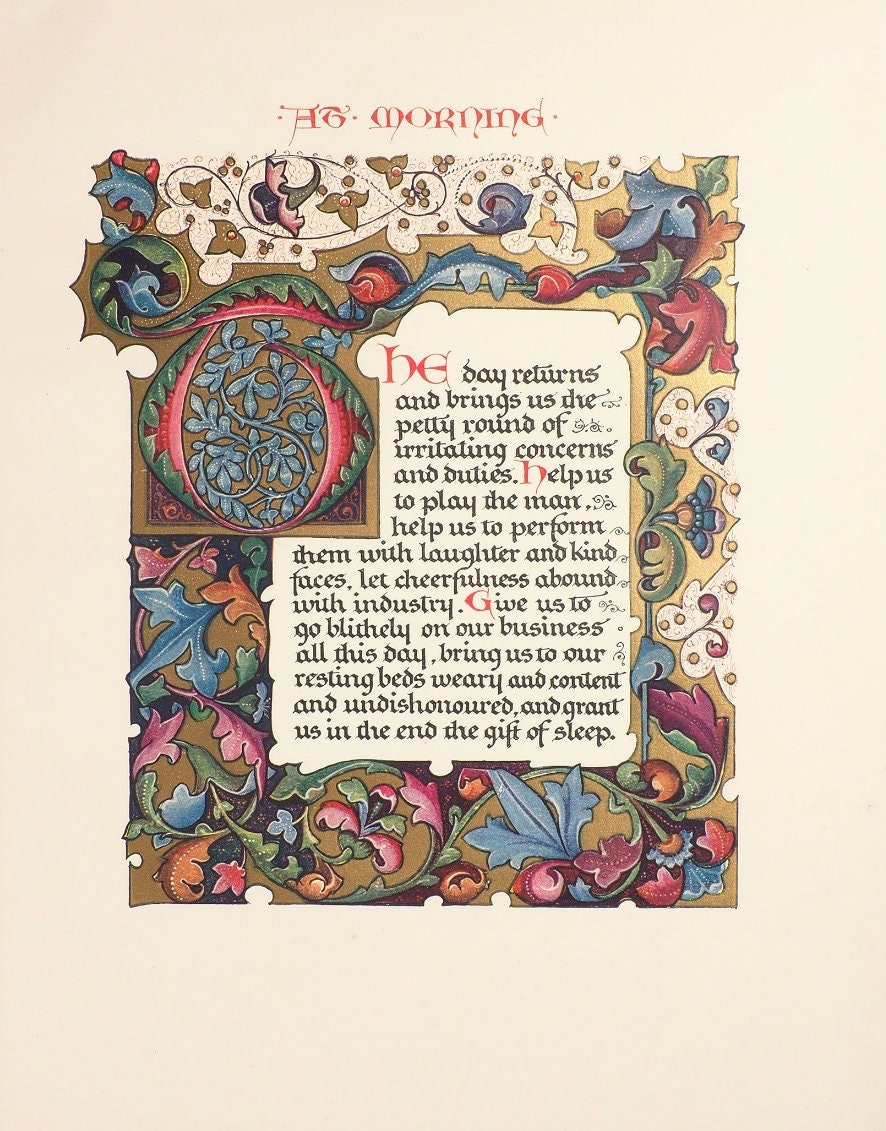 ·AT· MORNING·
THE day returns
and brings us the
petty round of
irritating concerns
and duties. Help us
to play the man,
help us to perform
them with laughter and kind
faces, let cheerfulness abound
with industry. Give us to
go blithely on our business
all this day, bring us to our
resting beds weary and content
and undishonoured, and grant
us in the end the gift of sleep.